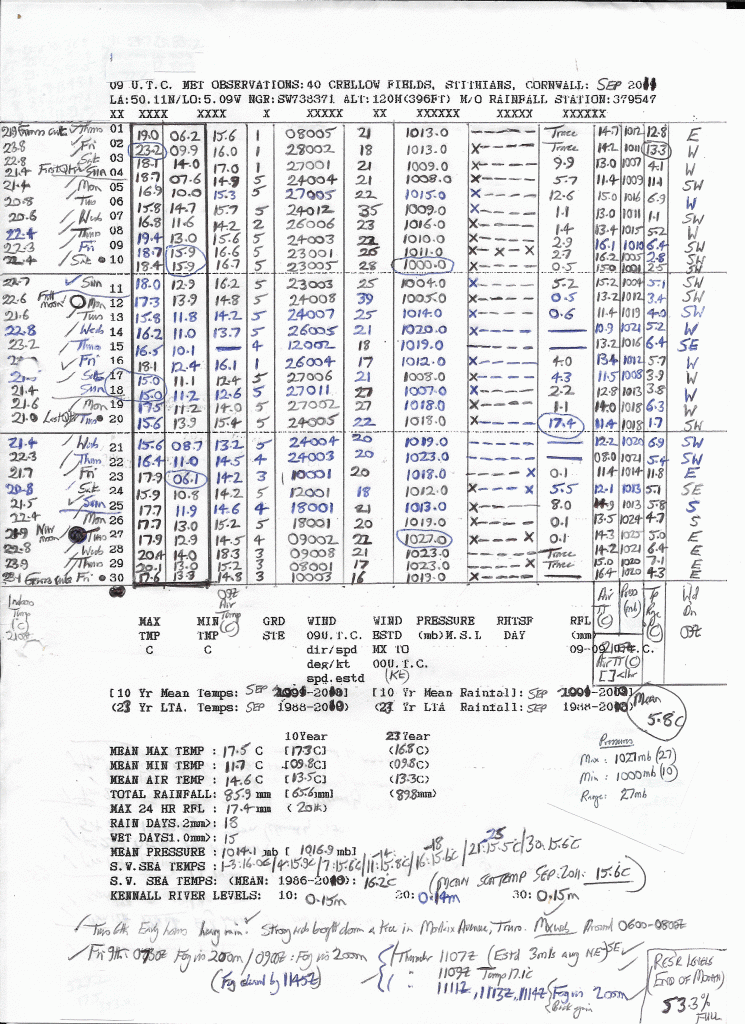 09 U.T.C. MET OBSERVATIONS:40 CRELLOW FIELDS, STITHIANS, CORNWALL: SEP 2011
LA:50.11N/LO:5.09W NGR:SW738371 ALT:120M(396FT) M/O RAINFALL STATION:379547
XX XXXX XXXX X XXXXX XX XXXXXX XXXXX XXXXXX
Thurs 01 19.0 06.2 15.6 1 08005 21 1013.0 ------ Trace 14.7 1012 12.8 E
23.8 Fri 02 23.2 09.9 16.0 1 28002 18 1013.0 X----- Trace 14.2 1011 13.3 W
22.8 Sat 03 18.1 14.0 17.0 1 27001 21 1009.0 X----- 9.9 13.0 1007 4.1 W
21.4 First Qtr Sun 04 18.7 07.6 14.9 5 24004 21 1008.0 X----- 5.7 11.4 1009 11.1 SW
21.4 Mon 05 16.9 10.0 15.3 5 27005 22 1015.0 X----- 12.6 15.0 1016 6.9 W
20.8 Tues 06 15.8 14.7 15.7 5 24012 35 1009.0 X----- 1.1 13.0 1011 1.1 SW
20.6 Weds 07 16.8 11.6 14.2 2 26006 23 1016.0 X----- 1.4 13.4 1015 5.2 W
22.4 Thurs 08 19.4 13.0 15.6 5 24003 22 1010.0 X----- 2.9 16.1 1010 6.4 SW
22.3 Fri 09 18.7 15.9 15.6 5 23001 20 1011.0 X---X---X 2.7 16.2 1005 2.8 SW
22.4 Sat 10 18.4 15.9 16.7 5 23005 28 1000.0 X----- 0.5 15.0 1001 2.5 SW
22.7 Sun 11 18.0 12.9 16.2 5 23003 25 1004.0 X----- 5.2 15.2 1004 5.1 SW
22.6 Full moon Mon 12 17.3 13.9 14.8 5 24008 39 1005.0 X----- 0.5 13.2 1012 3.4 SW
21.6 Tues 13 15.8 11.8 14.2 5 24007 25 1014.0 X----- 0.6 11.4 1019 4.0 SW
22.8 Weds 14 16.2 11.0 13.7 5 26005 21 1020.0 ------ — 10.9 1021 5.2 W
23.2 Thurs 15 16.5 10.1 — 4 12002 18 1019.0 ------ — 13.2 1016 6.4 SE
Fri 16 18.1 12.4 16.1 1 26004 17 1012.0 X----- 4.0 13.4 1012 5.7 W
Sat 17 15.0 11.1 12.4 5 27006 21 1008.0 X----- 4.3 11.5 1008 3.9 W
21.4 Sun 18 15.0 11.2 12.6 5 27011 27 1007.0 X----- 2.2 12.8 1013 3.8 W
21.6 Mon 19 17.5 11.2 14.0 5 27002 27 1018.0 X----- 1.1 14.0 1018 6.3 W
21.0 Last Qtr Tues 20 15.6 13.9 15.4 5 24005 22 1018.0 X----- 17.4 11.4 1018 1.7 SW
21.4 Weds 21 15.6 08.7 13.2 5 24004 20 1019.0 ------ — 12.2 1020 6.9 SW
22.3 Thurs 22 16.4 11.0 14.5 4 24003 20 1023.0 ------ — 08.0 1021 5.4 SW
21.7 Fri 23 17.9 06.1 14.2 3 10001 20 1018.0 -----X 0.1 11.4 1014 11.8 E
20.8 Sat 24 15.9 10.8 14.2 5 12001 18 1012.0 X----X 5.5 12.1 1013 5.1 SE
21.5 Sun 25 17.7 11.9 14.6 4 18001 21 1013.0 X----- 8.0 14.9 1013 5.8 S
22.4 Mon 26 17.7 13.0 15.2 5 18001 20 1019.0 X----- 0.1 13.5 1024 4.7 S
21.9 New moon Tues 27 17.9 12.9 14.5 4 09002 22 1027.0 X----X 0.1 14.3 1025 5.0 E
22.8 Weds 28 20.4 14.0 18.3 3 09008 21 1023.0 ------ Trace 14.2 1021 6.4 E
23.9 Thurs 29 20.1 13.0 15.2 3 08001 17 1023.0 -----X Trace 15.0 1020 7.1 E
Fri 30 17.6 13.3 14.8 3 10003 16 1019.0 X----- Trace 16.4 1020 4.3 E
Indoor Temp (C) 2100Z
09Z Air Temp (C)
Air TT (C) Press (mb) Tp Rge (C) Wd Dn 09Z
MAX MIN GRD WIND WIND PRESSURE RHTSF RFL
TMP TMP STE 09U.T.C. ESTD (mb)M.S.L DAY (mm)
C C dir/spd MX TO 09-09U.T.C.
deg/kt 00U.T.C.
spd.estd (KE)
Air TT (C)
[10 Yr Mean Temps: SEP 2001-2010] [10 Yr Mean Rainfall: SEP 2001-2010]
(23 Yr LTA. Temps: SEP 1988-2010 (23 Yr LTA Rainfall: SEP 1988-2010
Mean 5.8C
10Year 23 Year
MEAN MAX TEMP : 17.5 C [17.3C] (16.8C)
MEAN MIN TEMP : 11.7 C [09.8C] (09.8C)
MEAN AIR TEMP : 14.6 C [13.5C] (13.3C)
TOTAL RAINFALL: 85.9mm [65.6mm] (89.8mm)
MAX 24 HR RFL : 17.4mm (20th)
RAIN DAYS.2mm): 18
WET DAYS1.0mm): 15
Pressures
Max: 1027mb (27)
Min: 1000mb (10)
Range: 27mb
MEAN PRESSURE : 1014.1 mb [1016.9 mb]
S.W.SEA TEMPS : 1-3:16.0C/4:15.9C/7:15.6C/11-14:15.8C/16-18:15.6C/21-25:15.5C/30:15.6C
S.W. SEA TEMPS: (MEAN: 1986-2010): 16.2C (MEAN SEA TEMP SEP.2011: 15.6C)
KENNALL RIVER LEVELS: 10: 0.15m 20: 0.14m 30: 0.15m
Tues 6th Early hours heavy rain. Strong winds brought down a tree in Moresk Avenue, Truro. Around 0600-0800Z
Fri 9th 0730Z Fog vis 200m/0900Z: Fog vis 200m Thunder 1107Z (Estd 3mls away NE) SE
(Fog cleared by 1145Z) " 1109Z Temp 17.1C
" 1111Z, 1113Z, 1114Z Fog vis 200m
Back again
RESR LEVELS
END OF MONTH)
53.3%
FULL